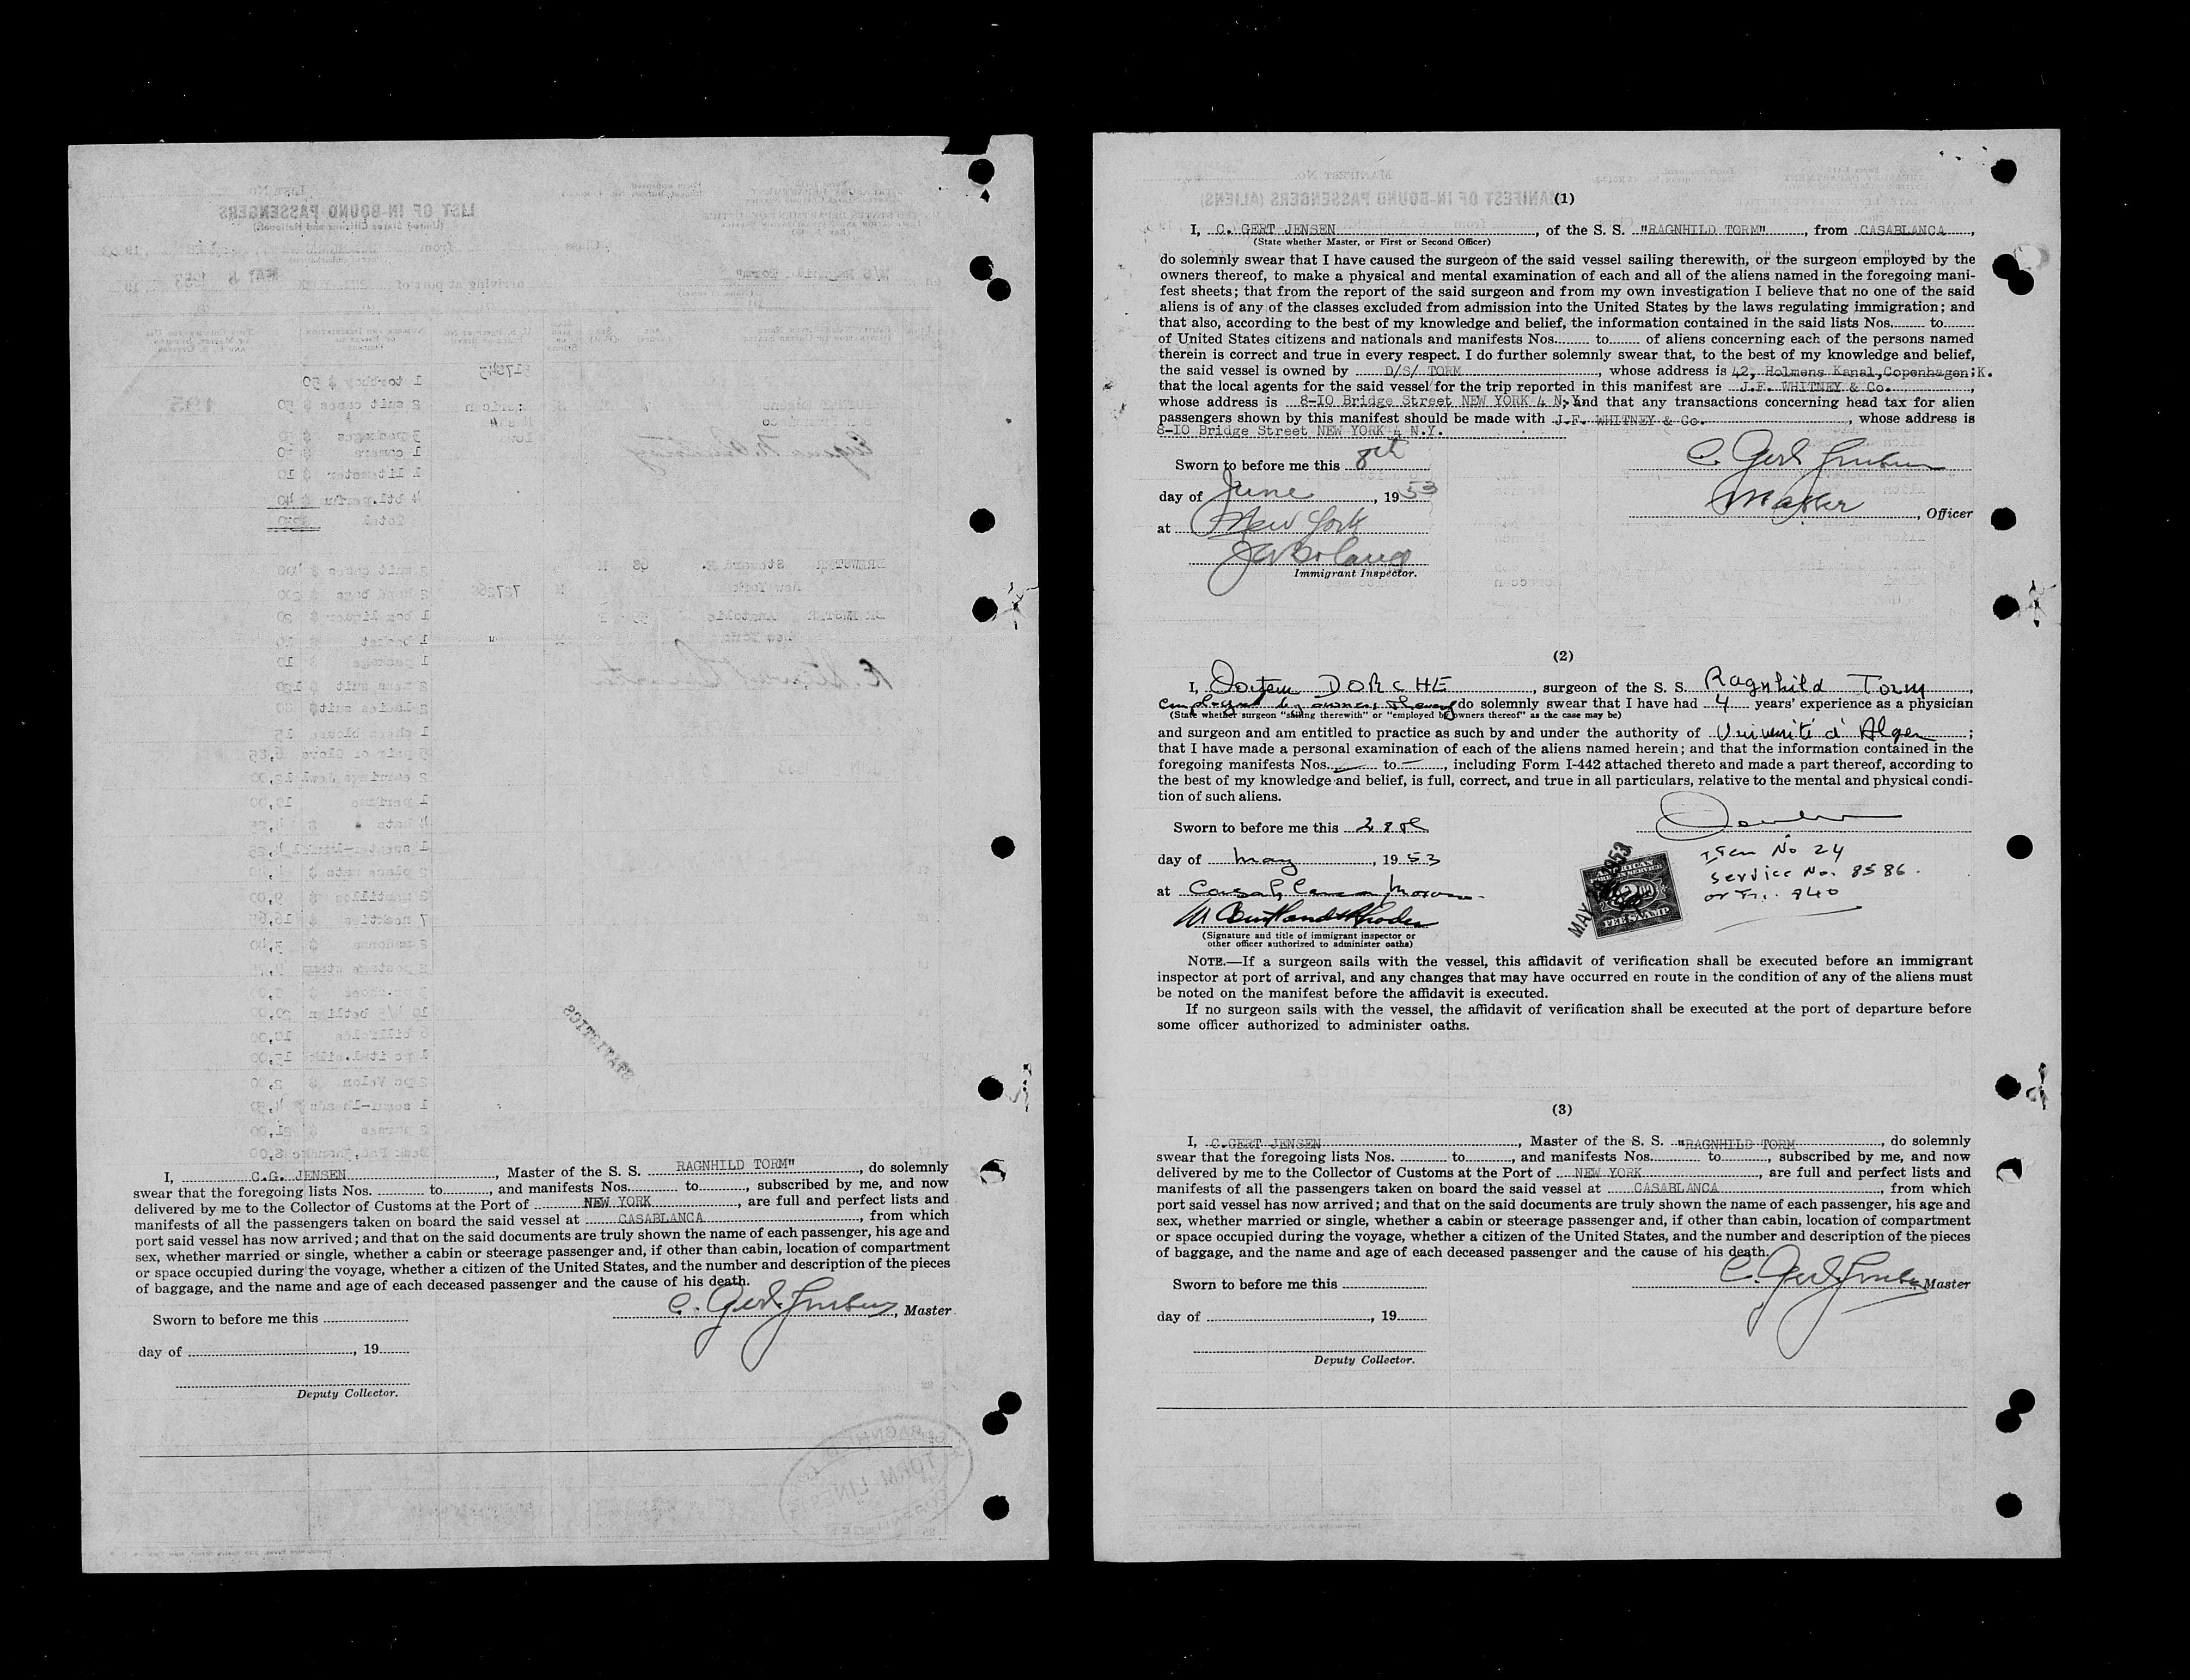 I, C.G. JENSEN, Master of the S. S. RAGNHILD TORM", do solemnly
swear that the foregoing lists Nos. ........ to........, and manifests Nos......... to........, subscribed by me, and now
delivered by me to the Collector of Customs at the Port of NEW YORK, are full and perfect lists and
manifests of all the passengers taken on board the said vessel at CASABLANCA, from which
port said vessel has now arrived; and that on the said documents are truly shown the name of each passenger, his age and
sex, whether married or single, whether a cabin or steerage passenger and, if other than cabin, location of compartment
or space occupied during the voyage, whether a citizen of the United States, and the number and description of the pieces
of baggage, and the name and age of each deceased passenger and the cause of his death.
C. Gert Jensen, Master
Sworn to before me this
day of ........, 19....
Deputy Collector.
(1)
I, C. GERT JENSEN, of the S. S. "RAGNHILD TORM", from CASABLANCA,
(State whether Master, or First or Second Officer)
do solemnly swear that I have caused the surgeon of the said vessel sailing therewith, or the surgeon employed by the
owners thereof, to make a physical and mental examination of each and all of the aliens named in the foregoing mani-
fest sheets; that from the report of the said surgeon and from my own investigation I believe that no one of the said
aliens is of any of the classes excluded from admission into the United States by the laws regulating immigration; and
that also, according to the best of my knowledge and belief, the information contained in the said lists Nos......... to........
of United States citizens and nationals and manifests Nos......... to........ of aliens concerning each of the persons named
therein is correct and true in every respect. I do further solemnly swear that, to the best of my knowledge and belief,
the said vessel is owned by D/S/ TORM, whose address is 42, Holmens Kanal,Copenhagen;K.
that the local agents for the said vessel for the trip reported in this manifest are J.F. WHITNEY & Co.,
whose address is 8-IO Bridge Street NEW YORK 4 N.Y. and that any transactions concerning head tax for alien
passengers shown by this manifest should be made with J.F. WHITNEY & Co., whose address is
8-IO Bridge Street NEW YORK 4 N.Y.
Sworn to before me this 8th
C. Gert Jensen
day of June, 1953
Master, Officer
at New York
Immigrant Inspector.
(2)
I, Doctem DORCHE, surgeon of the S. S. Ragnhild Torm,
employed by owners thereof do solemnly swear that I have had 4 years' experience as a physician
(State whether surgeon "sailing therewith" or "employed by owners thereof" as the case may be)
and surgeon and am entitled to practice as such by and under the authority of Université d'Alger;
that I have made a personal examination of each of the aliens named herein; and that the information contained in the
foregoing manifests Nos. — to —, including Form I-442 attached thereto and made a part thereof, according to
the best of my knowledge and belief, is full, correct, and true in all particulars, relative to the mental and physical condi-
tion of such aliens.
Sworn to before me this 28th
day of May, 1953
at Casablanca, Morocco
(Signature and title of immigrant inspector or
other officer authorized to administer oaths)
MAY 1953
AMERICAN
FOREIGN SERVICE
FEE STAMP
Item No 24
Service No. 8586.
or Fr. 840
NOTE.—If a surgeon sails with the vessel, this affidavit of verification shall be executed before an immigrant
inspector at port of arrival, and any changes that may have occurred en route in the condition of any of the aliens must
be noted on the manifest before the affidavit is executed.
If no surgeon sails with the vessel, the affidavit of verification shall be executed at the port of departure before
some officer authorized to administer oaths.
(3)
I, C.GERT JENSEN, Master of the S. S. "RAGNHILD TORM, do solemnly
swear that the foregoing lists Nos. ........ to........, and manifests Nos......... to........, subscribed by me, and now
delivered by me to the Collector of Customs at the Port of NEW YORK, are full and perfect lists and
manifests of all the passengers taken on board the said vessel at CASABLANCA, from which
port said vessel has now arrived; and that on the said documents are truly shown the name of each passenger, his age and
sex, whether married or single, whether a cabin or steerage passenger and, if other than cabin, location of compartment
or space occupied during the voyage, whether a citizen of the United States, and the number and description of the pieces
of baggage, and the name and age of each deceased passenger and the cause of his death.
Sworn to before me this
C. Gert Jensen, Master
day of ........, 19....
Deputy Collector.